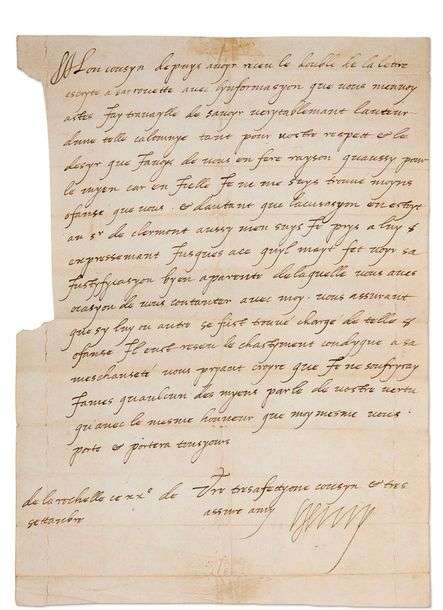 Mon cousyn depuys avoyr receu le double de la letre
escryte a larrouette avec lynformasyon que vous menvoy
astes Jay travaylle de savoyr verytablement lauteur
dune telle calomnye tant pour vostre respect & le
desyr que Javoys de vous en fere rayson quaussy pour
le myen car en Jcelle Je ne me suys trouve moyns
ofanse que vous & dautant que lacusasyon en estoyt
au sr de clermont aussy men suys Je prys a luy &
expressement Jusques ace quyl mayt fet voyr sa
Justyfycasyon byen aparente de laquelle vous aves
ocasyon de vous contanter avec moy vous assurant
que sy luy ou autre se fust trouve charge de telle
ofanse Jl eust reseu le chastyment condygne a sa
meschansete vous pryant croyre que Je ne soufryray
James quaulcun des myens parle de vostre vertu
quavec le mesme honneur que moy mesme vous
porte & portera tousyours
de la rochelle ce xxe de
settanbre
Vre tresafectyone cousyn & tres
assure amy
Henry